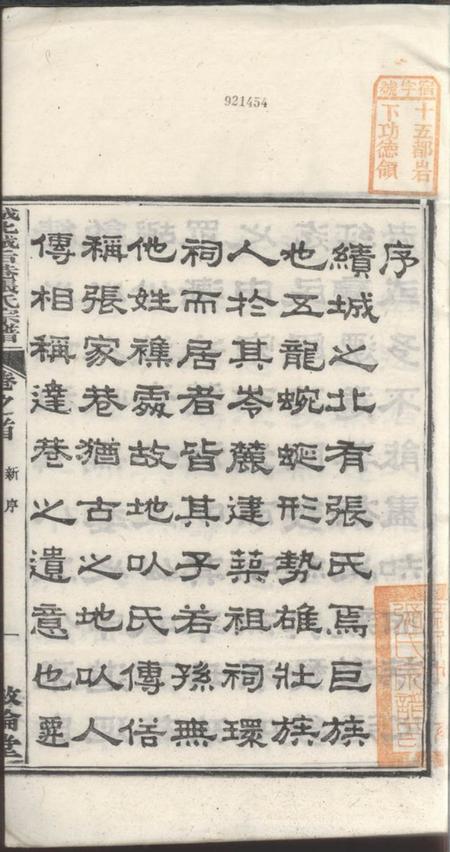 921454
宿字號
十五都岩
下功德領
序
績城之北有張氏焉巨族
也五龍蜿蜒形勢雄壯族
人於其岑麓建築祖祠環
祠而居者皆其子若孫無
他姓襍處故地以氏傳俗
稱張家巷猶古之地以人
傳相稱達巷之遺意也
張氏宗譜
卷之首
新序
一
敘倫堂